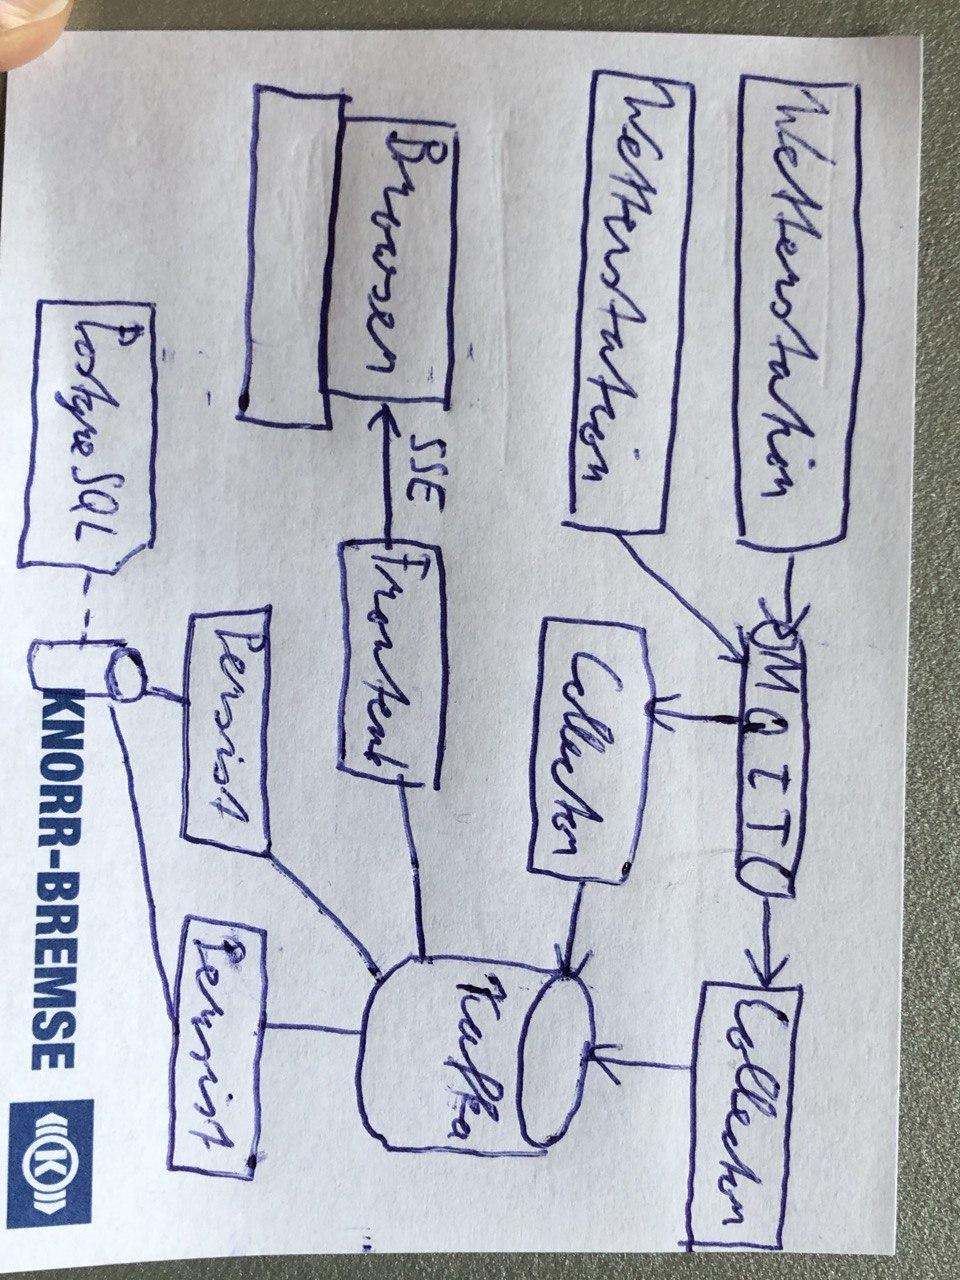 Wetterstation
MQTT
Collector
Wetterstation
Collector
Kafka
Browser
SSE
Frontend
Persist
Persist
PostgreSQL
KNORR-BREMSE
K